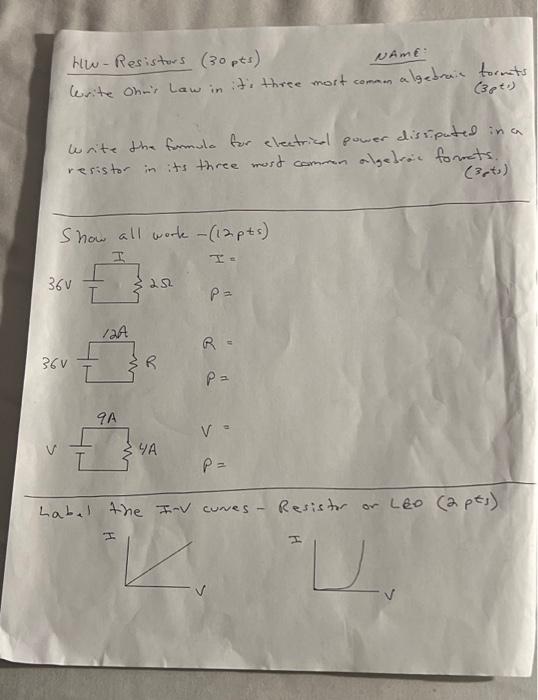 HW - Resistors (30 pts)
NAME:
Write Ohm's Law in it's three most common algebraic formats
(3pts)
Write the formula for electrical power dissipated in a
resistor in its three most common algebraic formats.
(3pts)
Show all work - (12pts)
I
I =
36V
2Ω
P =
12A
R =
36V
R
P =
9A
V =
V
4A
P =
Label the I-V curves - Resistor or LED (2 pts)
I
I
V
V